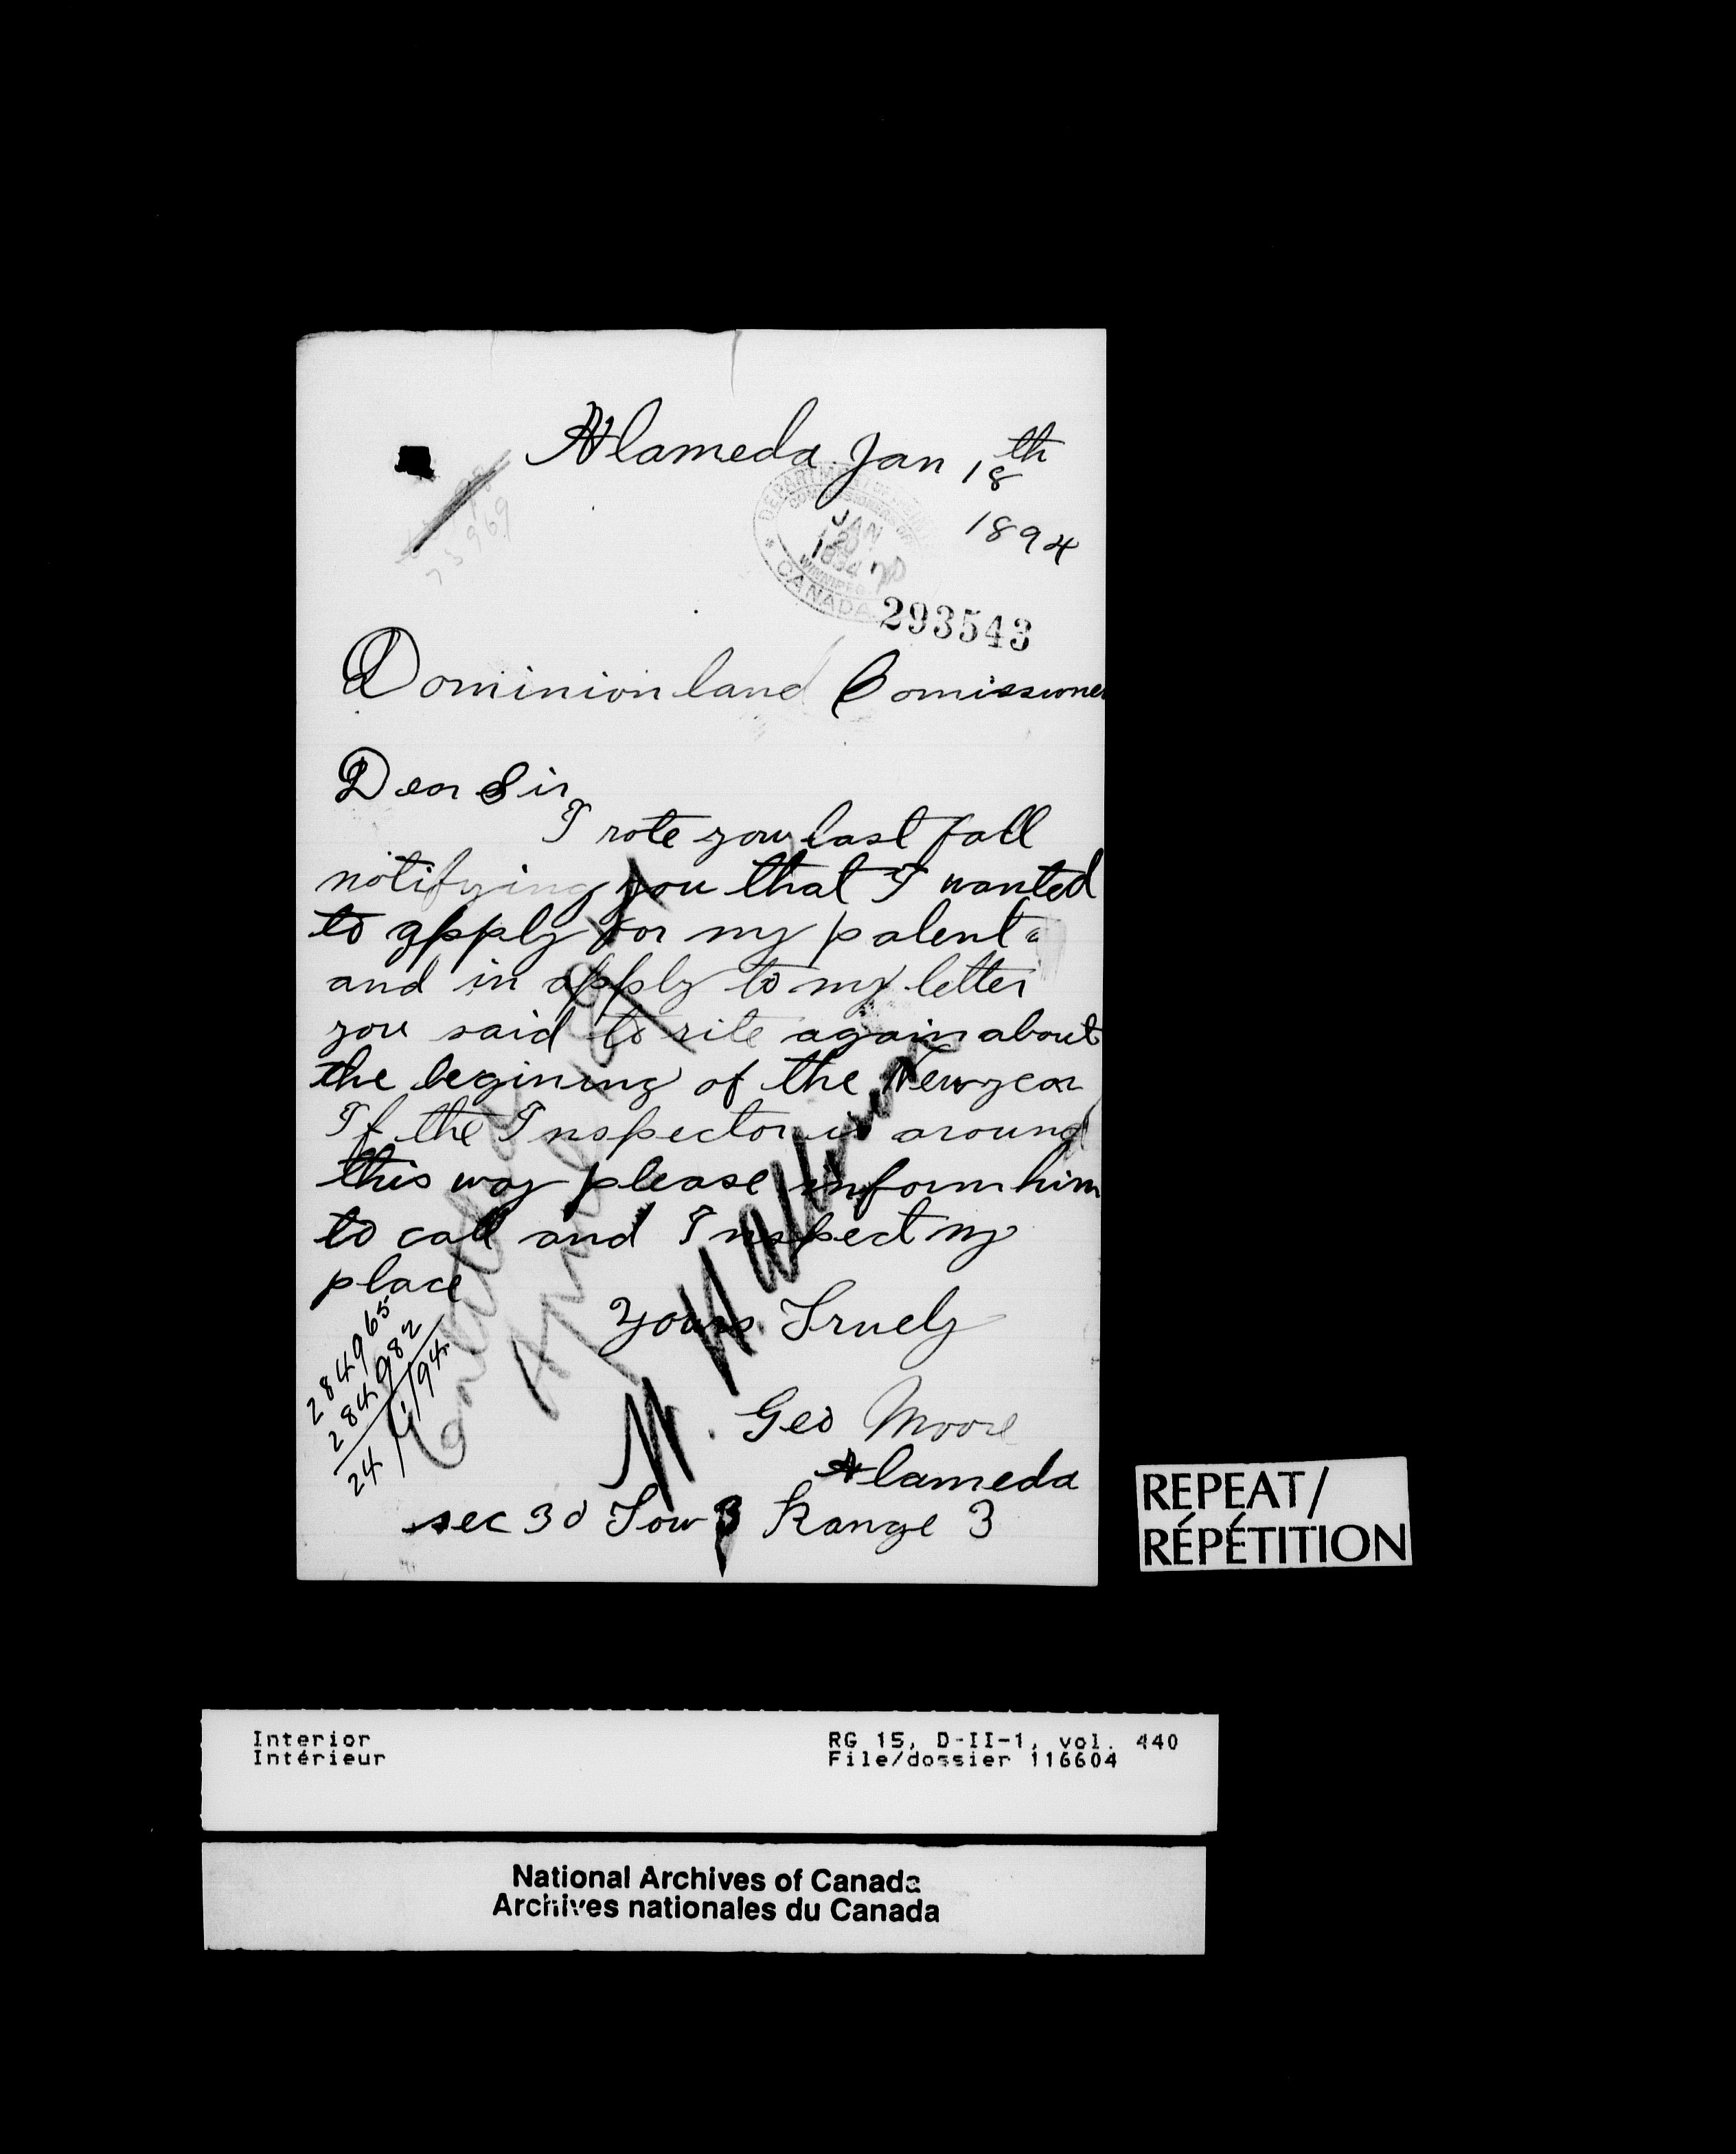 Alameda Jan 18th
1894
DEPARTMENT OF
JAN
20
1894
WINNIPEG
CANADA
293543
Dominion land Comissioner
Dear Sir
I rote you last fall
notifying you that I wanted
to apply for my patent
and in apply to my letter
you said to rite again about
the begining of the New year
If the Inspector is around
this way please inform him
to call and Inspect my
place
Yours Truely
Geo Moore
Alameda
sec 30 Tow 3 Range 3
284965
284982
24/1/94
REPEAT/
RÉPÉTITION
Interior
Intérieur
RG 15, D-II-1, vol. 440
File/dossier 116604
National Archives of Canada
Archives nationales du Canada